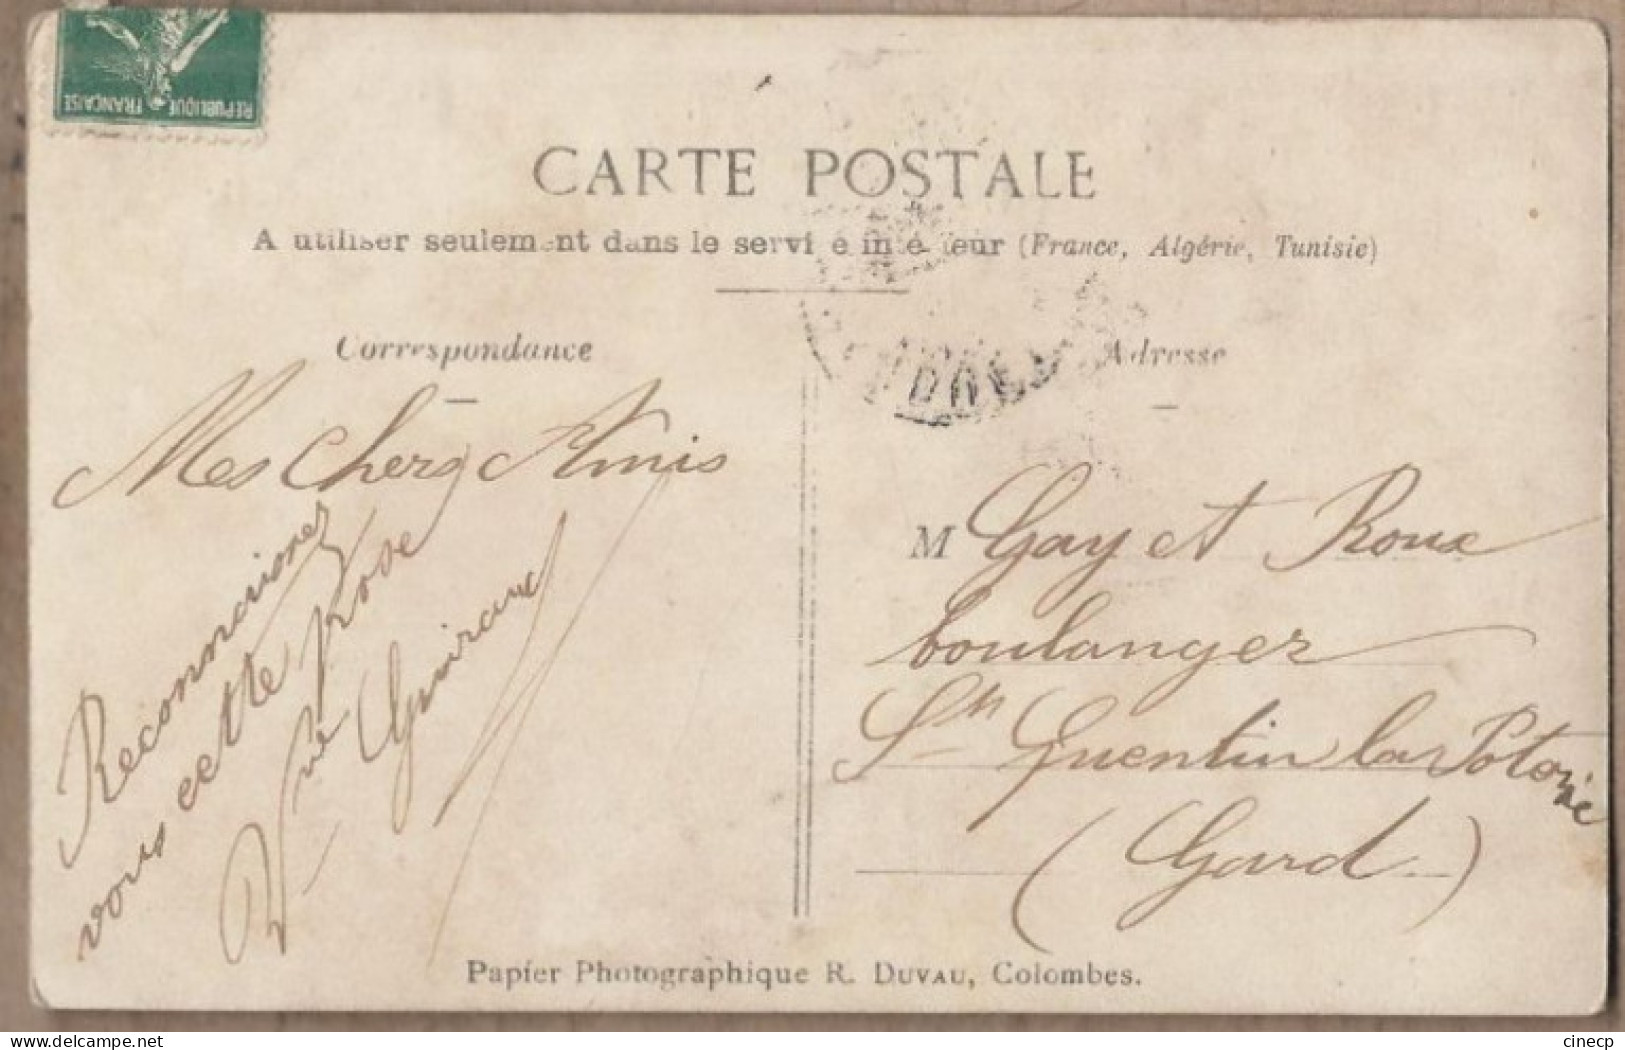 RÉPUBLIQUE FRANÇAISE
CARTE POSTALE
A utiliser seulement dans le service intérieur (France, Algérie, Tunisie)
Correspondance
Mes chers Amis
Reconnaissez
vous cette pose
Guiraud
Adresse
M Gay et Roux
boulanger
St Quentin la Poterie
(Gard)
Papier Photographique R. DUVAU, Colombes.
delcampe.net
cinecp